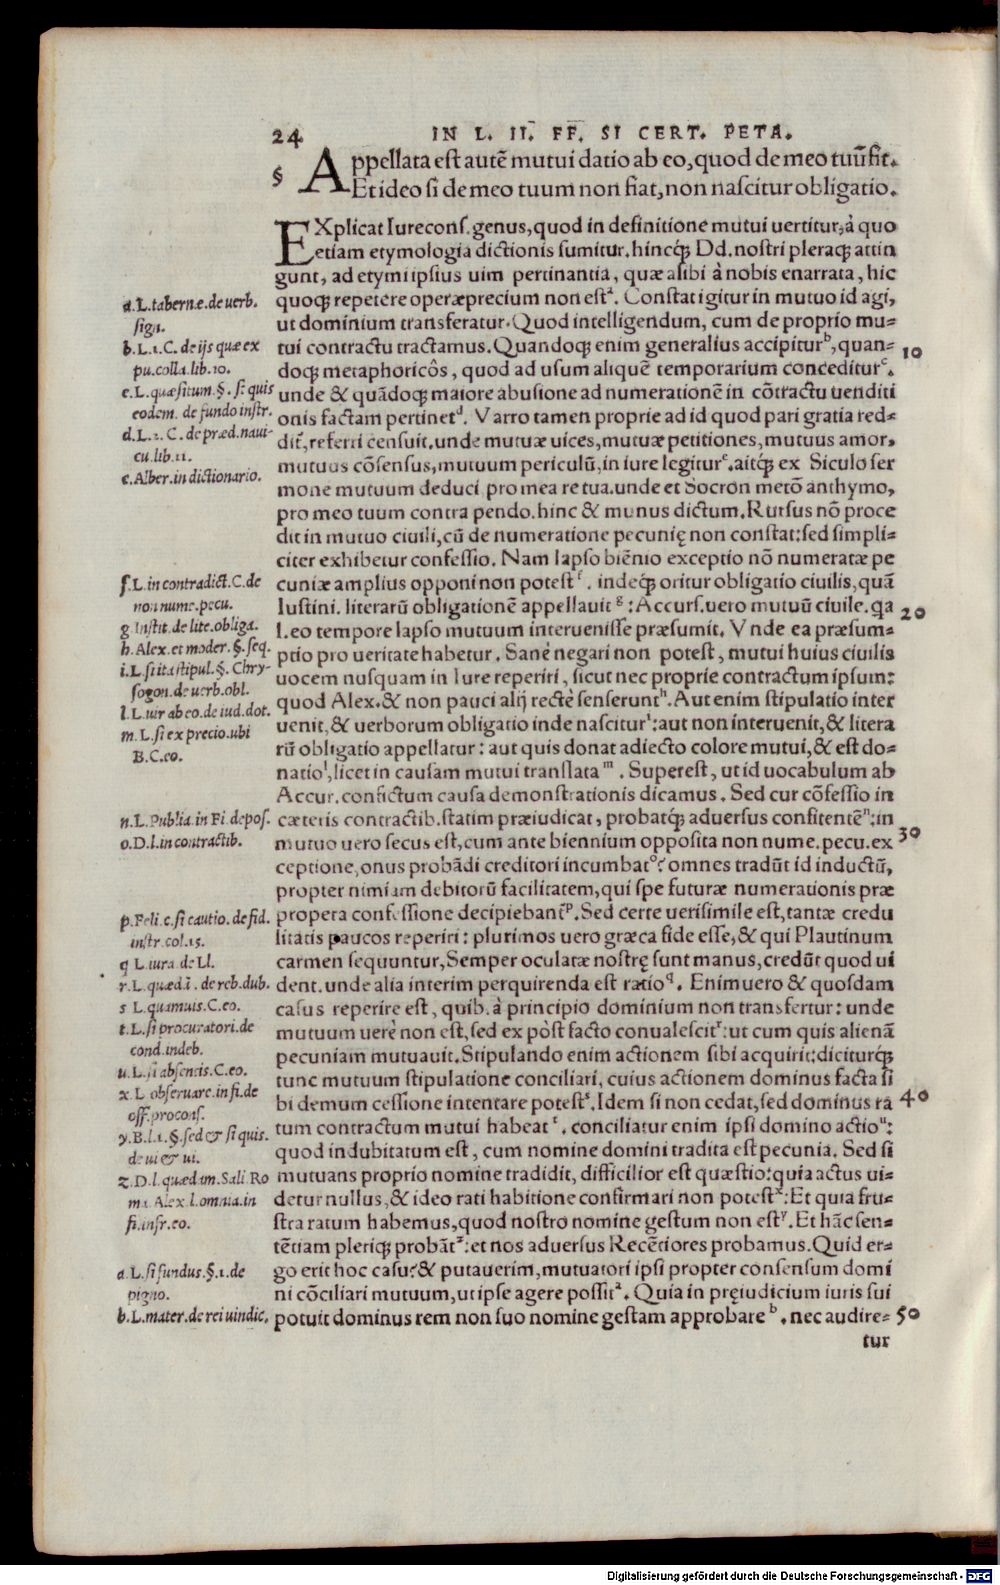 24 IN L. II. FF. SI CERT. PETA.
§ Appellata est autē mutui datio ab eo, quod de meo tuū fit.
Et ideo si de meo tuum non fiat, non nascitur obligatio.
EXplicat Iurecons. genus, quod in definitione mutui uertitur, à quo
etiam etymologia dictionis sumitur. hincq́; Dd. nostri pleraq; attin
gunt, ad etymi ipsius uim pertinantia, quæ alibi à nobis enarrata, hic
quoq; repetere operæprecium non est ª. Constat igitur in mutuo id agi,
ut dominium transferatur. Quod intelligendum, cum de proprio mu=
tui contractu tractamus. Quandoq; enim generalius accipitur ᵇ, quan=
doq; metaphoricôs, quod ad usum aliquē temporarium conceditur ᶜ.
unde & quādoq; maiore abusione ad numerationē in cōtractu uenditi
onis factam pertinet ᵈ. Varro tamen proprie ad id quod pari gratia red=
dit̃, referri censuit. unde mutuæ uices, mutuæ petitiones, mutuus amor,
mutuus cōsensus, mutuum periculū, in iure legitur ᵉ. aitq́; ex Siculo ser
mone mutuum deduci pro mea re tua. unde et Socron metō anthymo,
pro meo tuum contra pendo. hinc & munus dictum. Rursus nō proce
dit in mutuo ciuili, cū de numeratione pecunię non constat: sed simpli=
citer exhibetur confessio. Nam lapso biēnio exceptio nō numeratæ pe
cuniæ amplius opponi non potest ᶠ. indeq́; oritur obligatio ciuilis, quā
Iustini. literarū obligationē appellauit ᵍ: Accurs. uero mutuū ciuile. qa
l. eo tempore lapso mutuum interuenisse præsumit. Vnde ea præsum=
ptio pro ueritate habetur. Sanè negari non potest, mutui huius ciuilis
uocem nusquam in Iure reperiri, sicut nec proprie contractum ipsum:
quod Alex. & non pauci alij rectè senserunt ʰ. Aut enim stipulatio inter
uenit, & uerborum obligatio inde nascitur ⁱ: aut non interuenit, & litera
rū obligatio appellatur: aut quis donat adiecto colore mutui, & est do=
natio ˡ, licet in causam mutui translata ᵐ. Superest, ut id uocabulum ab
Accur. confictum causa demonstrationis dicamus. Sed cur cōfessio in
cæteris contractib. statim præiudicat, probatq́; aduersus confitentē ⁿ: in
mutuo uero secus est, cum ante biennium opposita non nume. pecu. ex
ceptione, onus probādi creditori incumbat º? omnes tradūt id inductū,
propter nimiam debitorū facilitatem, qui spe futuræ numerationis præ
propera confessione decipiebant̃ ᵖ. Sed certe uerisimile est, tantæ credu
litatis paucos reperiri: plurimos uero græca fide esse, & qui Plautinum
carmen sequuntur, Semper oculatæ nostrę sunt manus, credūt quod ui
dent. unde alia interim perquirenda est ratio q. Enimuero & quosdam
casus reperire est, quib. à principio dominium non transfertur: unde
mutuum uerè non est, sed ex pòst facto conualescit ʳ: ut cum quis alienā
pecuniam mutuauit. Stipulando enim actionem sibi acquirit: diciturq́;
tunc mutuum stipulatione conciliari, cuius actionem dominus facta si
bi demum cessione intentare potest ˢ. Idem si non cedat, sed dominus ra
tum contractum mutui habeat ᵗ. conciliatur enim ipsi domino actio ᵘ:
quod indubitatum est, cum nomine domini tradita est pecunia. Sed si
mutuans proprio nomine tradidit, difficilior est quæstio: quia actus ui=
detur nullus, & ideo rati habitione confirmari non potest ˣ: Et quia fru=
stra ratum habemus, quod nostro nomine gestum non est ʸ. Et hāc sen=
tētiam pleriq; probāt ᶻ: et nos aduersus Recētiores probamus. Quid er=
go erit hoc casu? & putauerim, mutuatori ipsi propter consensum domi
ni cōciliari mutuum, ut ipse agere possit ª. Quia in pręiudicium iuris sui
potuit dominus rem non suo nomine gestam approbare ᵇ. nec audire=
tur
a. L. tabernæ. de uerb.
sign.
b. L. 1. C. de ijs quæ ex
pu. colla. lib. 10.
c. L. quæsitum. §. si quis
eodem. de fundo instr.
d. L. 2. C. de præd. naui-
cu. lib. 11.
e. Alber. in dictionario.
f. L. in contradict. C. de
non nume. pecu.
g. Instit. de lite. obliga.
h. Alex. et moder. §. seq.
i. L. si ita stipul. §. Chry-
sogon. de uerb. obl.
l. L. uir ab eo. de iud. dot.
m. L. si ex precio. ubi
B. C. eo.
n. L. Publia. in Fi. depos.
o. D. l. in contractib.
p. Feli. c. si cautio. de fid.
instr. col. 15.
q L. iura. de Ll.
r. L. quædā. de reb. dub.
s L. quamuis. C. eo.
t. L. si procuratori. de
cond. indeb.
u. L. si absentis. C. eo.
x. L obseruare. in fi. de
off. procons.
y. B. l. 1. §. sed & si quis.
de ui & ui.
z. D. l. quædam. Sali. Ro
ma. Alex. l. omnia. in
fi. infr. eo.
a. L. si fundus. §. 1. de
pigno.
b. L. mater. de rei uindic.
10
20
30
40
50
Digitalisierung gefördert durch die Deutsche Forschungsgemeinschaft - DFG